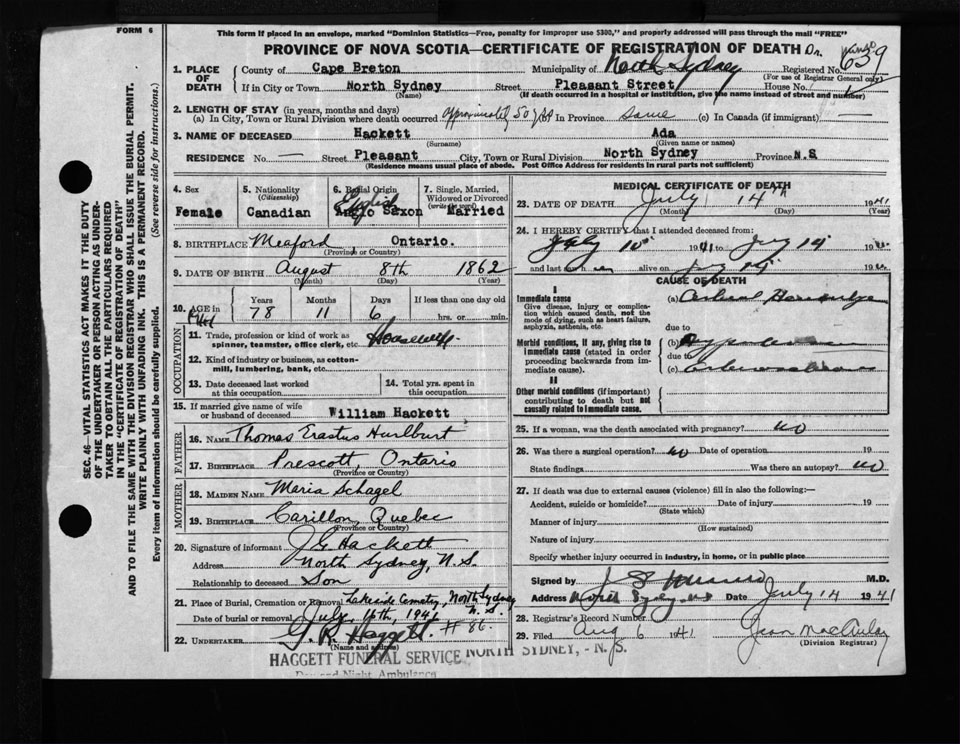 FORM 6
This form if placed in an envelope, marked "Dominion Statistics—Free, penalty for improper use $300," and properly addressed will pass through the mail "FREE"
PROVINCE OF NOVA SCOTIA—CERTIFICATE OF REGISTRATION OF DEATH
639
1. PLACE OF DEATH County of Cape Breton Municipality of North Sydney Registered No.
(For use of Registrar General only)
If in City or Town North Sydney Street Pleasant Street House No.
(Name) (If death occurred in a hospital or institution, give the name instead of street and number)
2. LENGTH OF STAY (in years, months and days)
(a) In City, Town or Rural Division where death occurred approximately 50 yrs (b) In Province same (c) In Canada (if immigrant) —
3. NAME OF DECEASED Hackett Ada
(Surname) (Given name or names)
RESIDENCE No. — Street Pleasant City, Town or Rural Division North Sydney Province N.S
(Residence means usual place of abode. Post Office Address for residents in rural parts not sufficient)
4. Sex Female
5. Nationality (Citizenship) Canadian
6. Racial Origin English Anglo Saxon
7. Single, Married, Widowed or Divorced (write the word) Married
8. BIRTHPLACE Meaford Ontario.
(Province or Country)
9. DATE OF BIRTH August 8th 1862
(Month) (Day) (Year)
10. AGE in Years Months Days If less than one day old
78 11 6 hrs. or min.
OCCUPATION
11. Trade, profession or kind of work as spinner, teamster, office clerk, etc. Housewife
12. Kind of industry or business, as cotton-mill, lumbering, bank, etc.
13. Date deceased last worked at this occupation
14. Total yrs. spent in this occupation
15. If married give name of wife or husband of deceased William Hackett
FATHER
16. NAME Thomas Erastus Hurlburt
17. BIRTHPLACE Prescott, Ontario
(Province or Country)
MOTHER
18. MAIDEN NAME Maria Schagel
19. BIRTHPLACE Carillon, Quebec
(Province or Country)
20. Signature of informant J G Hackett
Address North Sydney, N.S.
Relationship to deceased Son
21. Place of Burial, Cremation or Removal Lakeside Cemetery, North Sydney N.S.
Date of burial or removal July 16th, 1941
22. UNDERTAKER G. R. Haggett. # 86.
(Name and address)
HAGGETT FUNERAL SERVICE NORTH SYDNEY, - N.S.
Day and Night Ambulance
MEDICAL CERTIFICATE OF DEATH
23. DATE OF DEATH July 14th 1941
(Month) (Day) (Year)
24. I HEREBY CERTIFY that I attended deceased from:
July 10 1941 to July 14 19
and last saw h er alive on July 14 19
CAUSE OF DEATH
I
Immediate cause
Give disease, injury or complication which caused death, not the mode of dying, such as heart failure, asphyxia, asthenia, etc.
(a) Cerebral Hemorrhage
due to
Morbid conditions, if any, giving rise to immediate cause (stated in order proceeding backwards from immediate cause).
(b)
due to
(c)
II
Other morbid conditions (if important) contributing to death but not causally related to immediate cause.
25. If a woman, was the death associated with pregnancy? no
26. Was there a surgical operation? no Date of operation 19
State findings Was there an autopsy? no
27. If death was due to external causes (violence) fill in also the following:—
Accident, suicide or homicide? Date of injury 19
(State which)
Manner of injury
(How sustained)
Nature of injury
Specify whether injury occurred in industry, in home, or in public place
Signed by M.D.
Address North Sydney NS Date July 14 1941
28. Registrar's Record Number
29. Filed Aug 6 1941 Jean
(Division Registrar)
SEC. 46—VITAL STATISTICS ACT MAKES IT THE DUTY
OF THE UNDERTAKER OR PERSON ACTING AS UNDER-
TAKER TO OBTAIN ALL THE PARTICULARS REQUIRED
IN THE "CERTIFICATE OF REGISTRATION OF DEATH"
AND TO FILE THE SAME WITH THE DIVISION REGISTRAR WHO SHALL ISSUE THE BURIAL PERMIT.
WRITE PLAINLY WITH UNFADING INK. THIS IS A PERMANENT RECORD.
Every item of information should be carefully supplied. (See reverse side for instructions.)